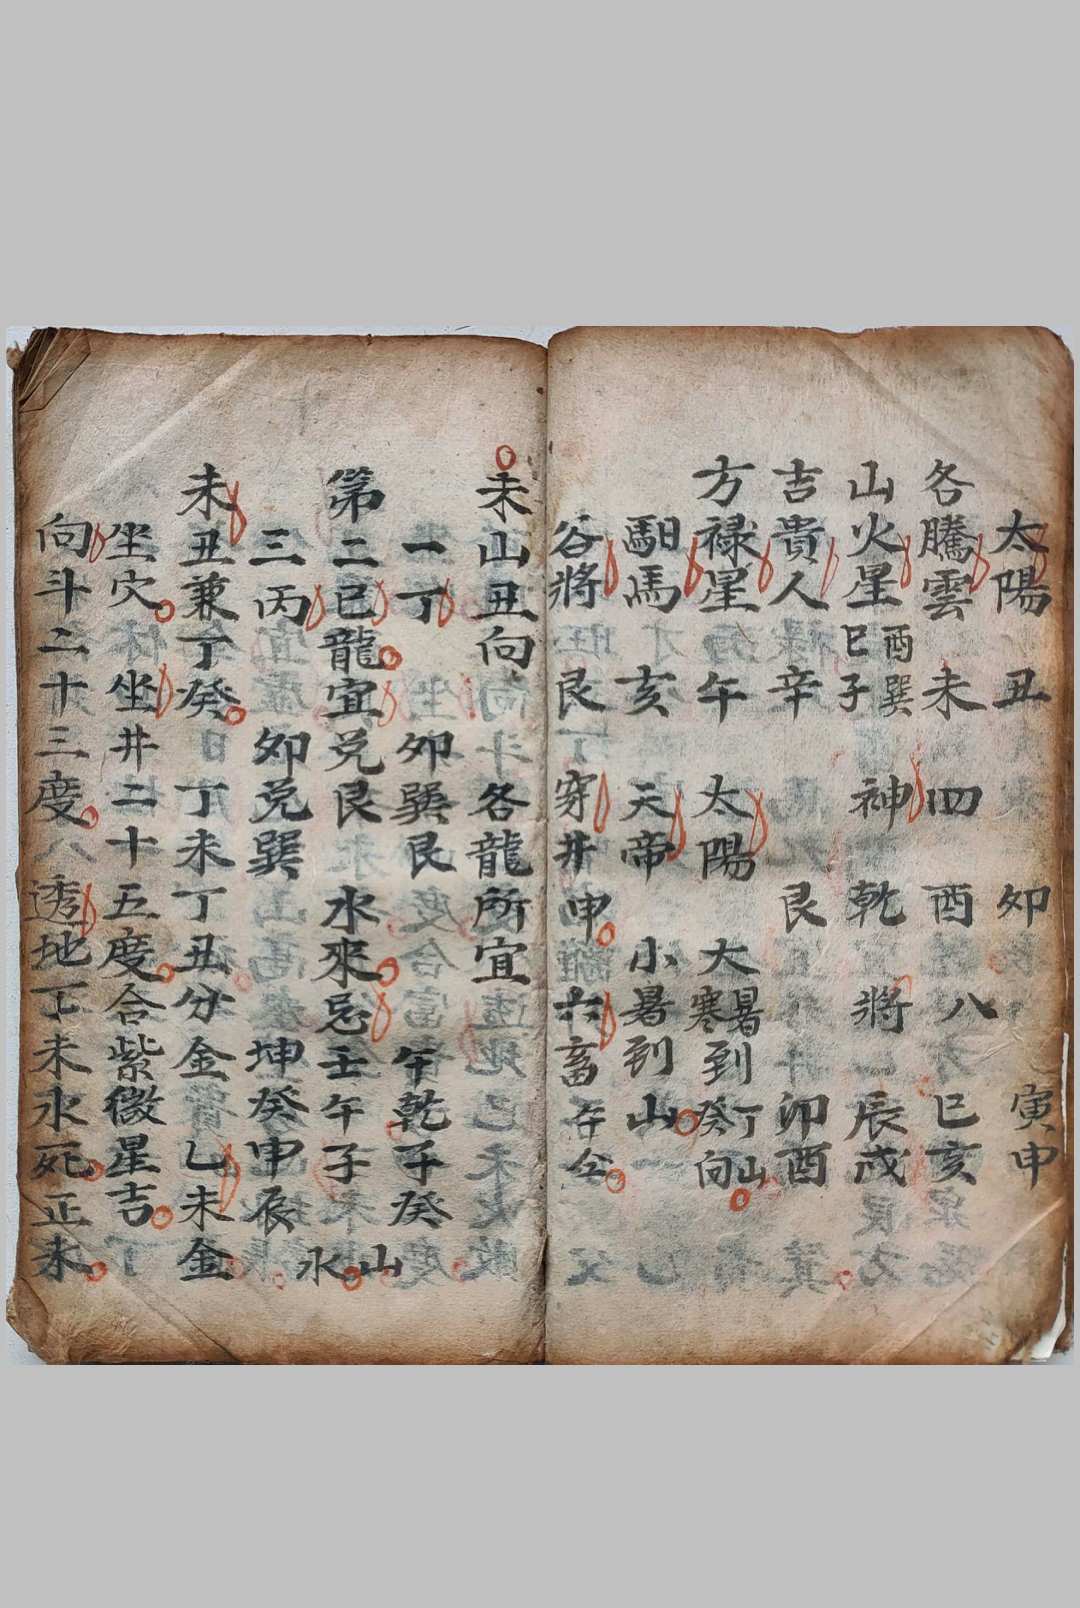 太陽 丑 卯 寅申
各騰雲 未 四 酉 八 巳亥
山火星 酉巽 巳子 神 乾 將 辰戌
吉貴人 辛 艮 卯酉
方祿星 午 太陽 大暑 大寒 到 丁山 癸向
馹馬 亥 天帝 小暑到山
谷將 艮 穿井 申 六畜 午仝
未山丑向 各龍所宜
一丁 卯巽艮 午乾子癸山
第二巳龍宜兌艮水來忌壬午子
三丙 卯兌巽 坤癸申辰水
未丑兼丁癸 丁未丁丑分金 乙未金
坐穴 坐井二十五度合紫微星吉
向斗二十三度 透地丁未水死正未